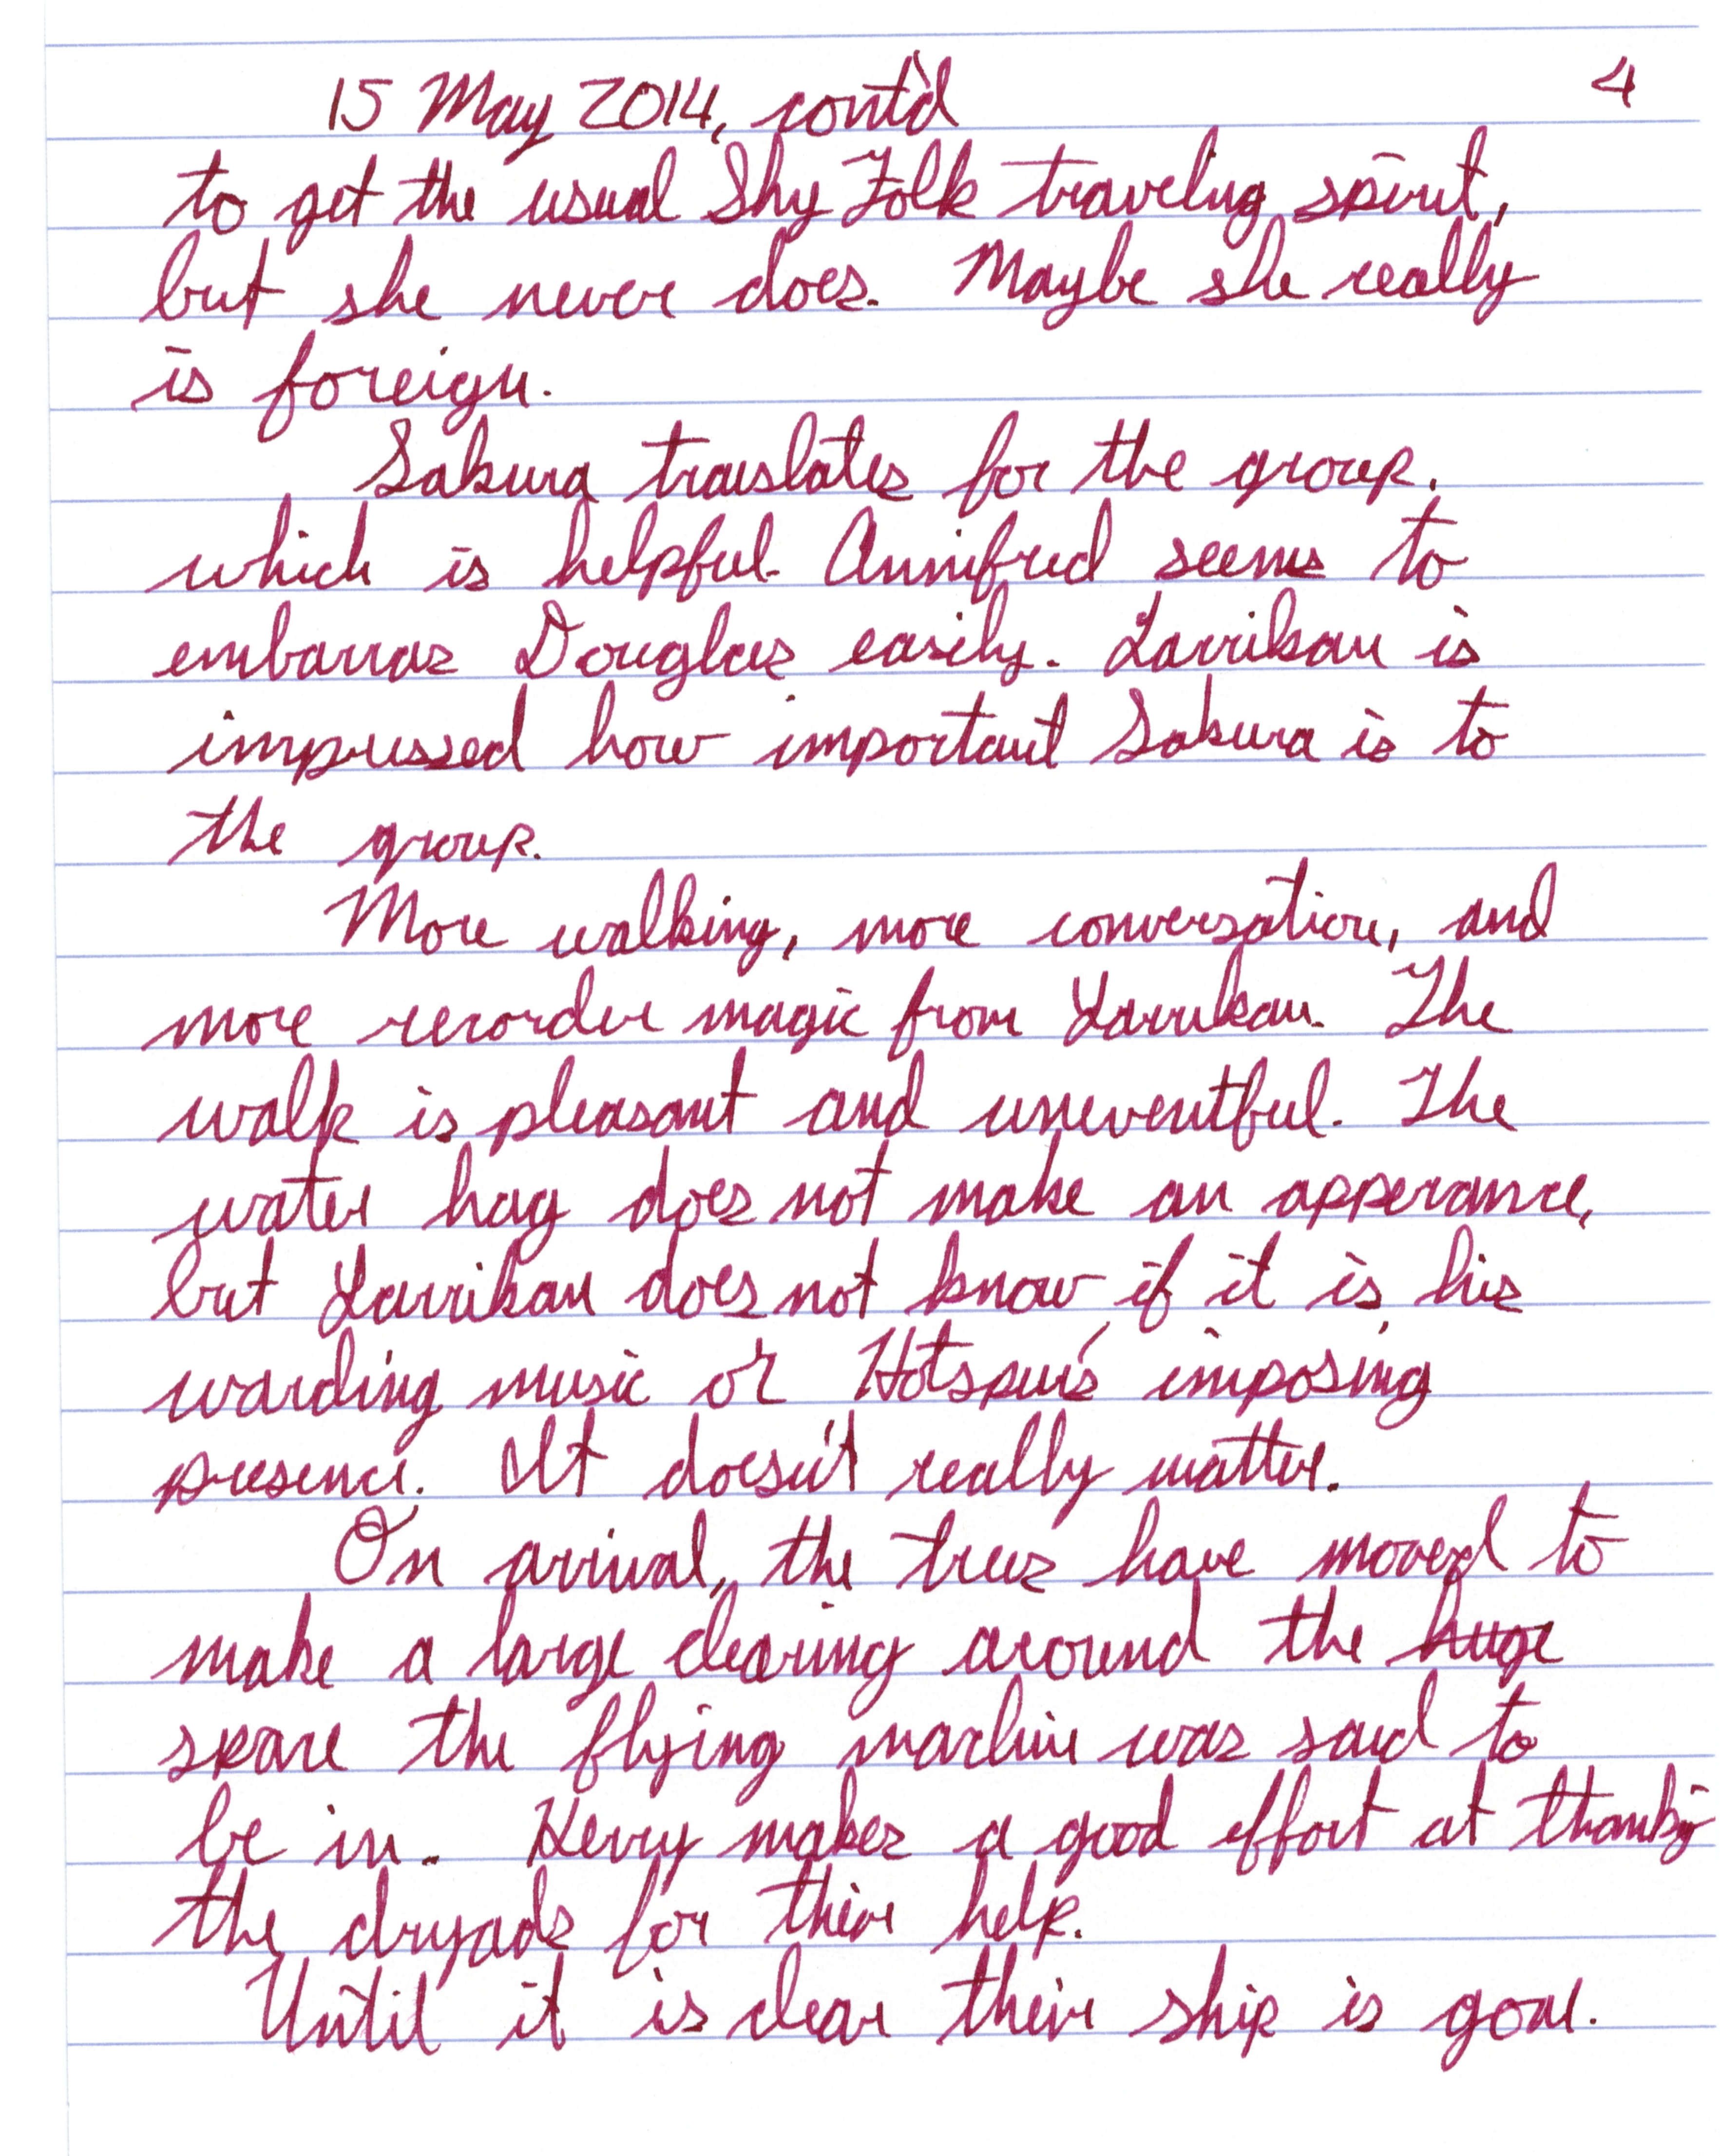 15 May 2014, cont'd 4
to get the usual Shy Folk traveling spirit,
but she never does. Maybe she really
is foreign.
Sakura translates for the group.
which is helpful. Annifred seems to
embarras Douglas easily. Larrikan is
impressed how important Sakura is to
the group.
More walking, more conversation, and
more recorder magic from Larrikan. The
walk is pleasant and uneventful. The
water hag does not make an apperance,
but Larrikan does not know if it is his
warding music or Hotspur's imposing
presence. It doesn't really matter.
On arrival, the trees have moved to
make a large clearing around the huge
space the flying machine was said to
be in. Kerry makes a good effort at thanking
the dryads for their help.
Until it is clear their ship is gone.